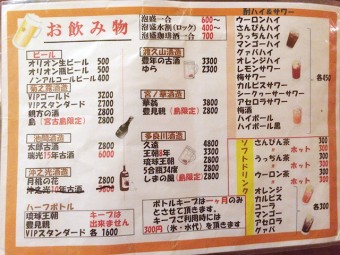 お飲み物
泡盛一合 600〜
泡盛水割(ロック) 400〜
泡盛珈琲酒一合 700
ビール
オリオン生ビール 500
オリオン瓶ビール 500
ノンアルコールビール 400
菊之露酒造
VIPゴールド 3200
VIPスタンダード 2300
親方の酒 2300
島(宮古島限定) 2300
池間酒造
太郎古酒 2500
瑞光15年古酒
沖之光酒造
月桃の花 2300
沖之光10年古酒
ハーフボトル
琉球王朝
豊見親
VIPスタンダード 各 1600
キープは
出来ません
豊年の古酒 2300
ゆら
宮ノ華酒造
華翁 3800
豊見親(島限定)
多良川酒造
久遠 4800
王朝8年 3300
琉球王朝 2800
5合瓶34歳 2800
しまの風(島限定) 2300
ボトルキープは一ヶ月のみ
とさせて頂きます。
キープご利用時には
300円(氷・水代)を頂きます
酎ハイ&サワー
ウーロンハイ
さんぴんハイ
うっちんハイ
マンゴーハイ
グァバハイ
オレンジハイ
レモンサワー
梅サワー
カルピスサワー
シークヮーサーサワー
アセロラサワー
梅酒
ハイボール
ハイボール黒
各450
ソフトドリンク
さんぴん茶 300
〃 ホット 300
うっちん茶 300
〃 ホット 300
ウーロン茶 300
オレンジ
カルピス
コーラ
マンゴー
アセロラ
グァバ
各300